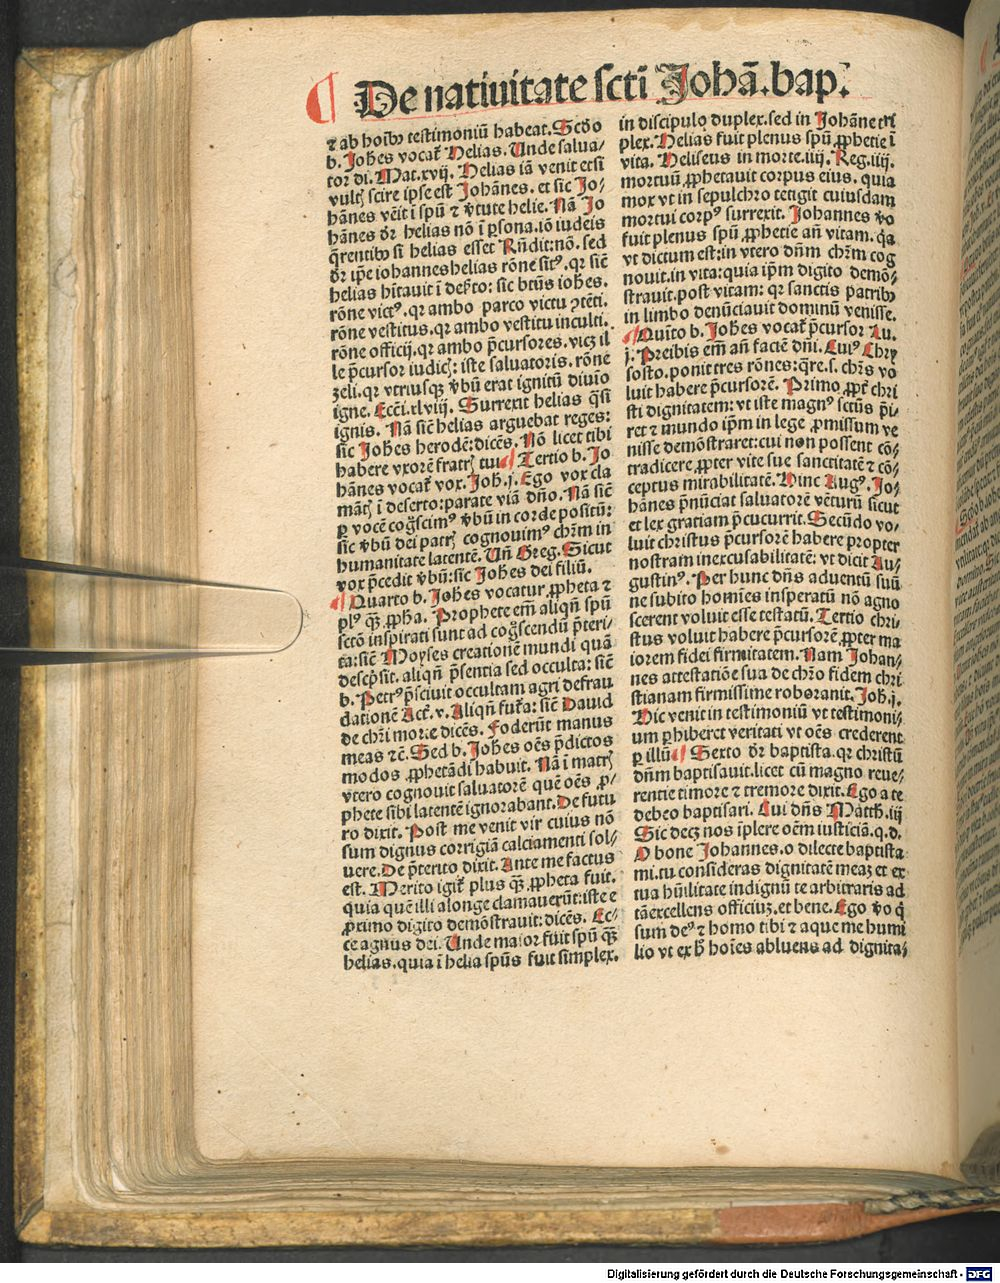 ¶ De natiuitate scti Johā.bap.
⁊ ab hoībꝰ testimoniū habeat. Scďo
b. Johēs vocat̄ Helias. Unde salua⸗
tor di. Mat.xvij. Helias iā venit et si
vultꝭ scire ipse est Johānes. et sic Jo⸗
hānes vēit ī spū ⁊ v̄tute helie. Nā Jo
hānes dr̄ helias nō ī ꝑsona. iō iudeis
q̄rentibꝰ si helias esset Rn̄dit: nō. sed
dr̄ ip̄e iohannes helias rōne sitꝰ. qꝛ sic̄
helias hītauit ī deẜto: sic btūs iohēs.
rōne victꝰ. qꝛ ambo parco victu ꝯtēti.
rōne vestitus. qꝛ ambo vestitu inculti.
rōne officij. qꝛ ambo p̄cursores. vicꝫ il
le p̄cursor iudicꝭ: iste saluatoris. rōne
zeli. qꝛ vtriusqꝫ v̄bū erat ignitū diuīo
igne. Ecc̄i.xlviij. Surrexit helias q̄si
ignis. Nā sic̄ helias arguebat reges:
sic Johēs herodē: dicēs. Nō licet tibi
habere vxorē fratrꝭ tui. ¶ Tertio b. Jo
hānes vocat̄ vox. Joh.j. Ego vox cla
mātꝭ ī deserto: parate viā dn̄o. Nā sic̄
ꝑ vocē coḡscimꝰ v̄bū in corde positū:
sic v̄bū dei patrꝭ cognouimꝰ chr̄m in
humanitate latentē. Un̄ Greg. Sicut
vox p̄cedit v̄bū: sic Johēs dei filiū.
¶ Quarto b. Johēs vocatur ꝓpheta ⁊
plꝰ qꝫ̄ ꝓpha. Prophete em̄ aliqn̄ spū
sctō inspirati sunt ad coḡscendū p̄teri⸗
ta: sic̄ Moyses creationē mundi quā
descp̄sit. aliqn̄ p̄sentia sed occulta: sic̄
b. Petrꝰ p̄sciuit occultam agri defrau
dationē Act̄.v. Aliqn̄ fut̄a: sic̄ Dauid
de chr̄i morte dicēs. Foderūt manus
meas ⁊c̄. Sed b. Johēs oēs p̄dictos
modos ꝓphetādi habuit. Nā ī matrꝭ
vtero cognouit saluatorē quē oēs ꝓ⸗
phete sibi latentē ignorabant. De futu
ro dixit. Post me venit vir cuius nō
sum dignus corrigiā calciamenti sol⸗
uere. De p̄terito dixit. Ante me factus
est. Merito igit̄ plus qꝫ̄ ꝓpheta fuit.
quia quē illi a longe clamauerūt: iste e
ꝓximo digito demōstrauit: dicēs. Ec⸗
ce agnus dei. Unde maior fuit spū qꝫ̄
helias. quia ī helia spūs fuit simplex.
in discipulo duplex. sed in Johāne tri
plex. Helias fuit plenus spū ꝓphetie ī
vita. Heliseus in morte.iiij. Reg.iiij.
mortuū ꝓphetauit corpus eius. quia
mox vt in sepulchro tetigit cuiusdam
mortui corpꝰ surrexit. Johannes v̄o
fuit plenus spū ꝓphetie an̄ vitam. q̄a
vt dictum est: in vtero dn̄m chr̄m cog
nouit. in vita: quia ip̄m digito demō⸗
strauit. post vitam: qꝛ sanctis patribꝰ
in limbo denūciauit dominū venisse.
¶ Quīto b. Johēs vocat̄ p̄cursor Lu.
j. Preibis em̄ an̄ faciē dn̄i. Cuiꝰ Chry
sosto. ponit tres rōnes: q̄re.s. chr̄s vo
luit habere p̄cursorē. Primo ꝓpt̄ chri
sti dignitatem: vt iste magnꝰ sctūs p̄i⸗
ret ⁊ mundo ip̄m in lege ꝓmissum ve
nisse demōstraret: cui non possent cō⸗
tradicere ꝓpter vite sue sanctitatē ⁊ cō⸗
ceptus mirabilitatē. Hinc Augꝰ. Jo⸗
hānes p̄nūciat saluatorē vēturū sicut
et lex gratiam p̄cucurrit. Secūdo vo⸗
luit christus p̄cursorē habere propter
nostram inexcusabilitatē: vt dicit Au⸗
gustinꝰ. Per hunc dn̄s aduentū suū
ne subito homīes insperatū nō agno
scerent voluit esse testatū. Tertio chri⸗
stus voluit habere p̄cursorē ꝓpter ma
iorem fidei firmitatem. Nam Johan⸗
nes attestatiōe sua de chr̄o fidem chri
stianam firmissime roborauit. Joh.j.
Hic venit in testimoniū vt testimoni⸗
um ꝑhiberet veritati vt oēs crederent
ꝑ illū. ¶ Sexto dr̄ baptista. qꝛ christū
dn̄m baptisauit. licet cū magno reue⸗
rentie timore ⁊ tremore dixit. Ego a te
debeo baptisari. Cui dn̄s Matth.iij
Sic decꝫ nos īplere oēm iusticiā. q.d.
O bone Johannes. o dilecte baptista
mi. tu consideras dignitatē meaꝫ et ex
tua hūilitate indignū te arbitraris ad
tā excellens officiuꝫ. et bene. Ego v̄o q̄
sum deꝰ ⁊ homo tibi ⁊ aque me humi
lio vt ex h̄ hoīes abluens ad dignita⸗
Digitalisierung gefördert durch die Deutsche Forschungsgemeinschaft - DFG